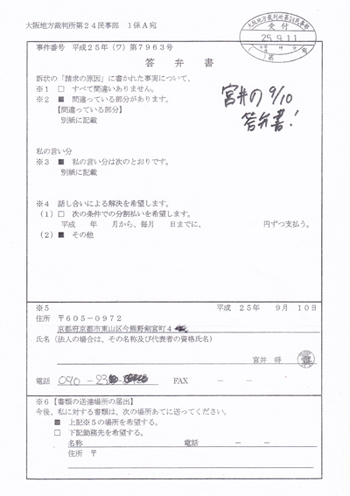 大阪地方裁判所第24民事部 1係A宛
25.9.11
受付
事件番号 平成25年(ワ)第7963号
答弁書
訴状の「請求の原因」に書かれた事実について、
※1 □ すべて間違いありません。
※2 ■ 間違っている部分があります。
【間違っている部分】
別紙に記載
宮井の9/10
答弁書!
私の言い分
※3 ■ 私の言い分は次のとおりです。
別紙に記載
※4 話し合いによる解決を希望します。
(1)□ 次の条件での分割払いを希望します。
平成 年 月から、毎月 日までに、 円ずつ支払う。
(2)■ その他
※5 平成 25年 9月 10日
住所 〒605-0972
京都府京都市東山区今熊野剣宮町4
氏名(法人の場合は、その名称及び代表者の資格氏名)
宮井 将
電話 090-23 FAX - -
※6【書類の送達場所の届出】
今後、私に対する書類は、次の場所あてに送ってください。
■ 上記※5の場所を希望する。
□ 下記勤務先を希望する。
名称 電話 - -
住所 〒